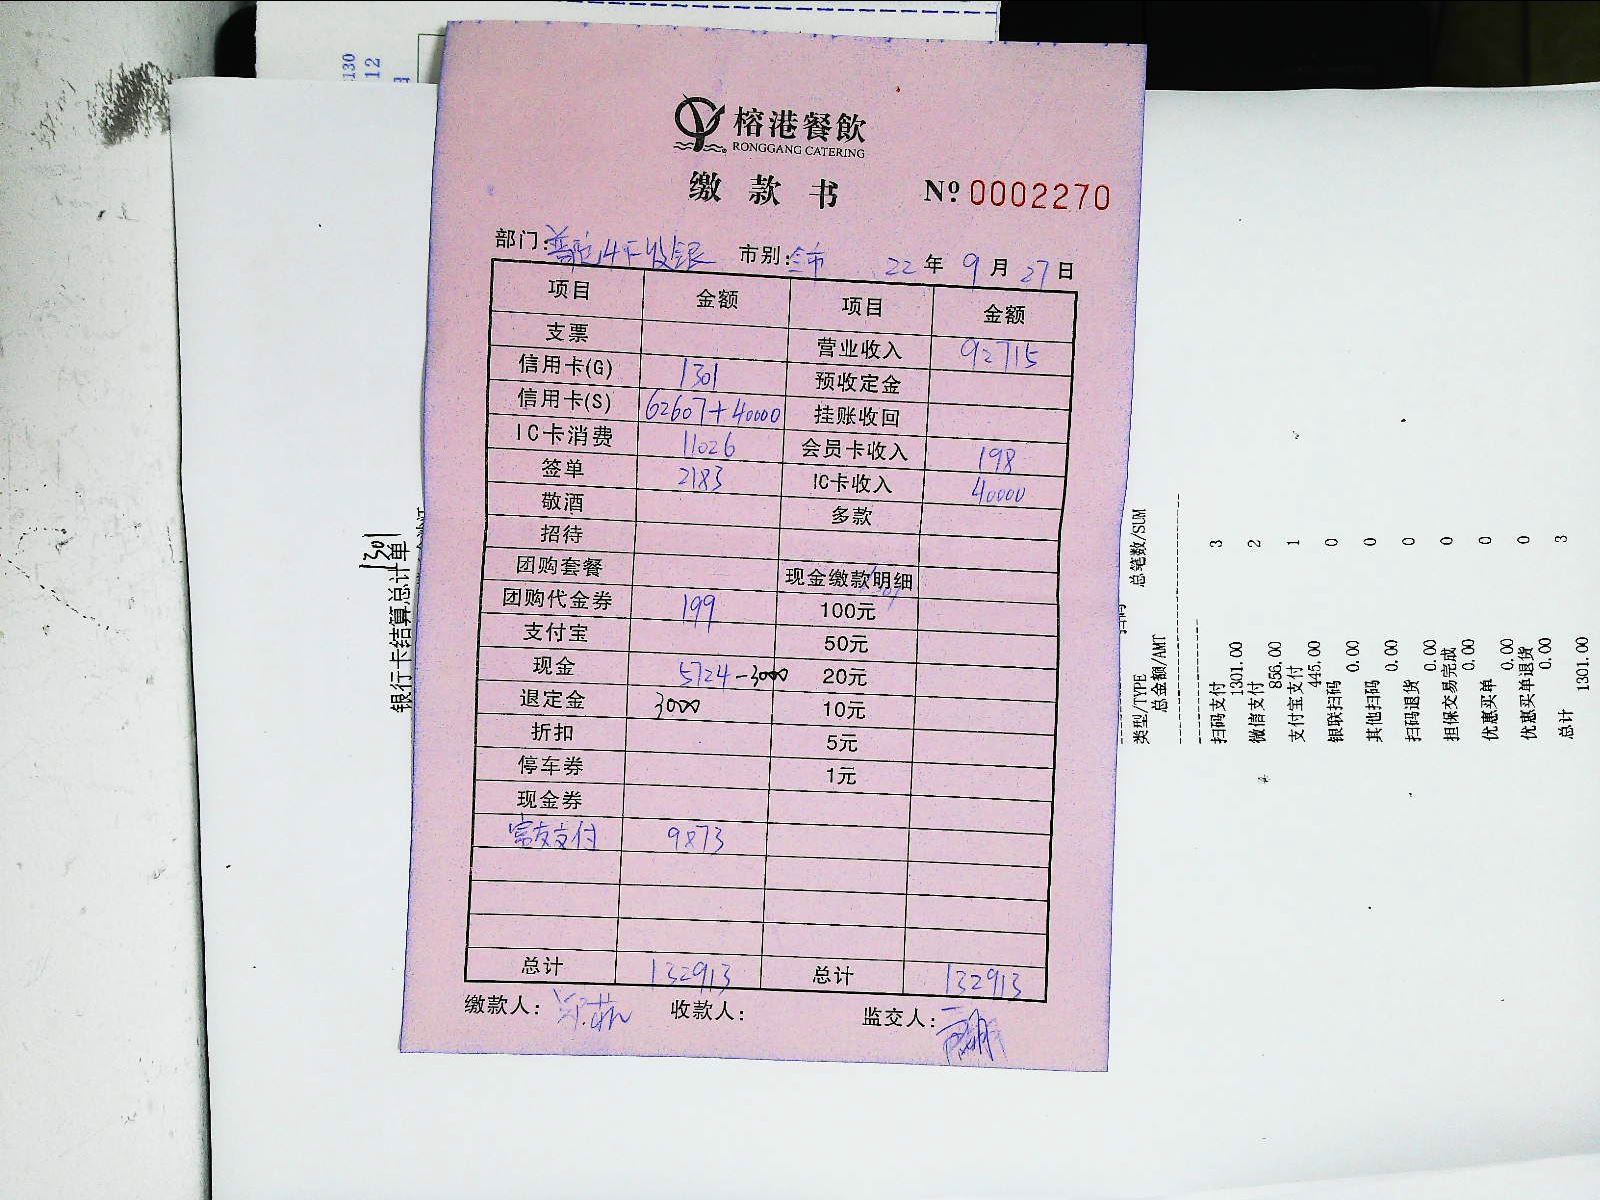 130
12
榕港餐飲
RONGGANG CATERING
缴款书 № 0002270
部门: 市别: 全市 22 年 9 月 27 日
项目 金额 项目 金额
支票 营业收入 92715
信用卡(G) 1301 预收定金
信用卡(S) 62607+40000 挂账收回
IC卡消费 11026 会员卡收入 198
签单 2183 IC卡收入 40000
敬酒 多款
招待
团购套餐 现金缴款明细
团购代金券 199 100元
支付宝 50元
现金 5724-3000 20元
退定金 3000 10元
折扣 5元
停车券 1元
现金券
富友支付 9873
总计 132913 总计 132913
缴款人: 收款人: 监交人:
1301
银行卡结算总计单
类型/TYPE 总笔数/SUM
总金额/AMT
扫码支付 3
1301.00
微信支付 2
856.00
支付宝支付 1
445.00
银联扫码 0
0.00
其他扫码 0
0.00
扫码退货 0
0.00
担保交易完成 0
0.00
优惠买单 0
0.00
优惠买单退货 0
0.00
总计 3
1301.00